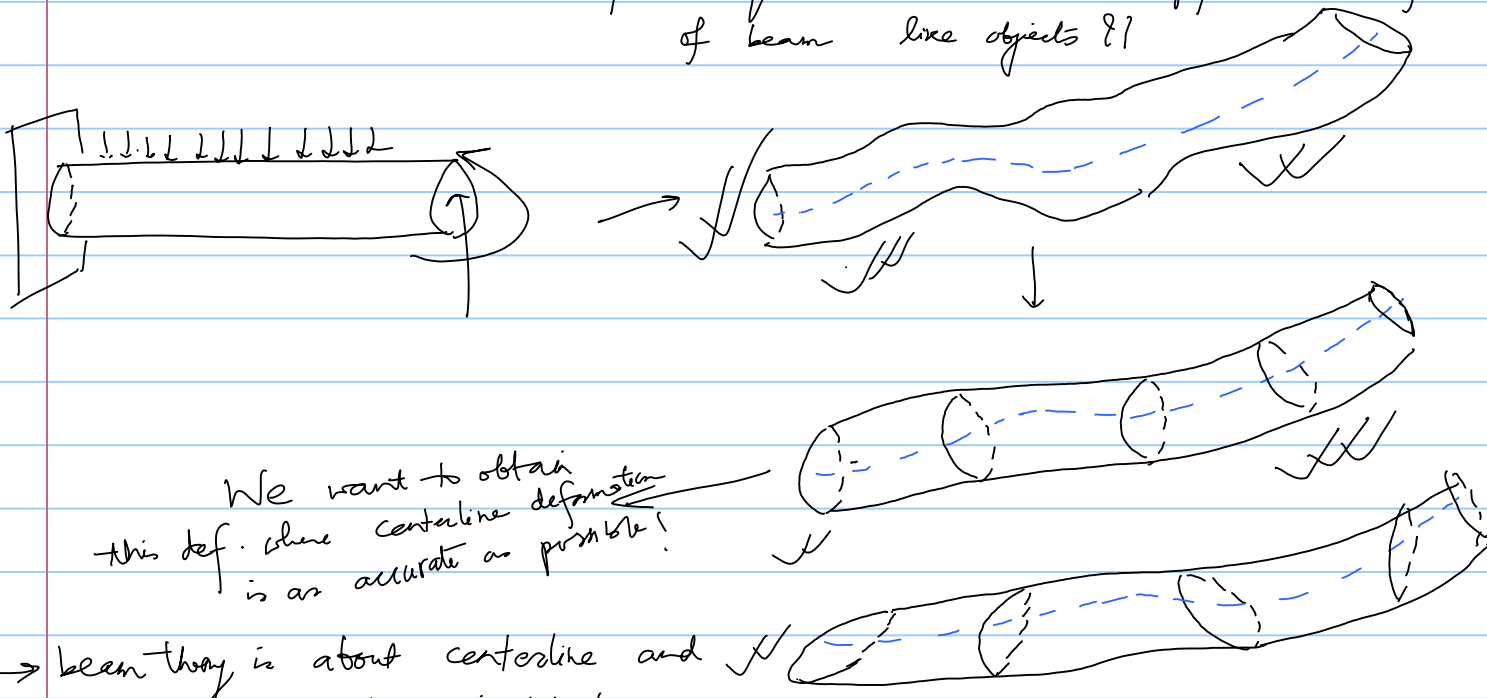 of beam like objects ?!
We want to obtain
this def. where centerline deformation
is as accurate as possible!
→ beam theory is about centerline and